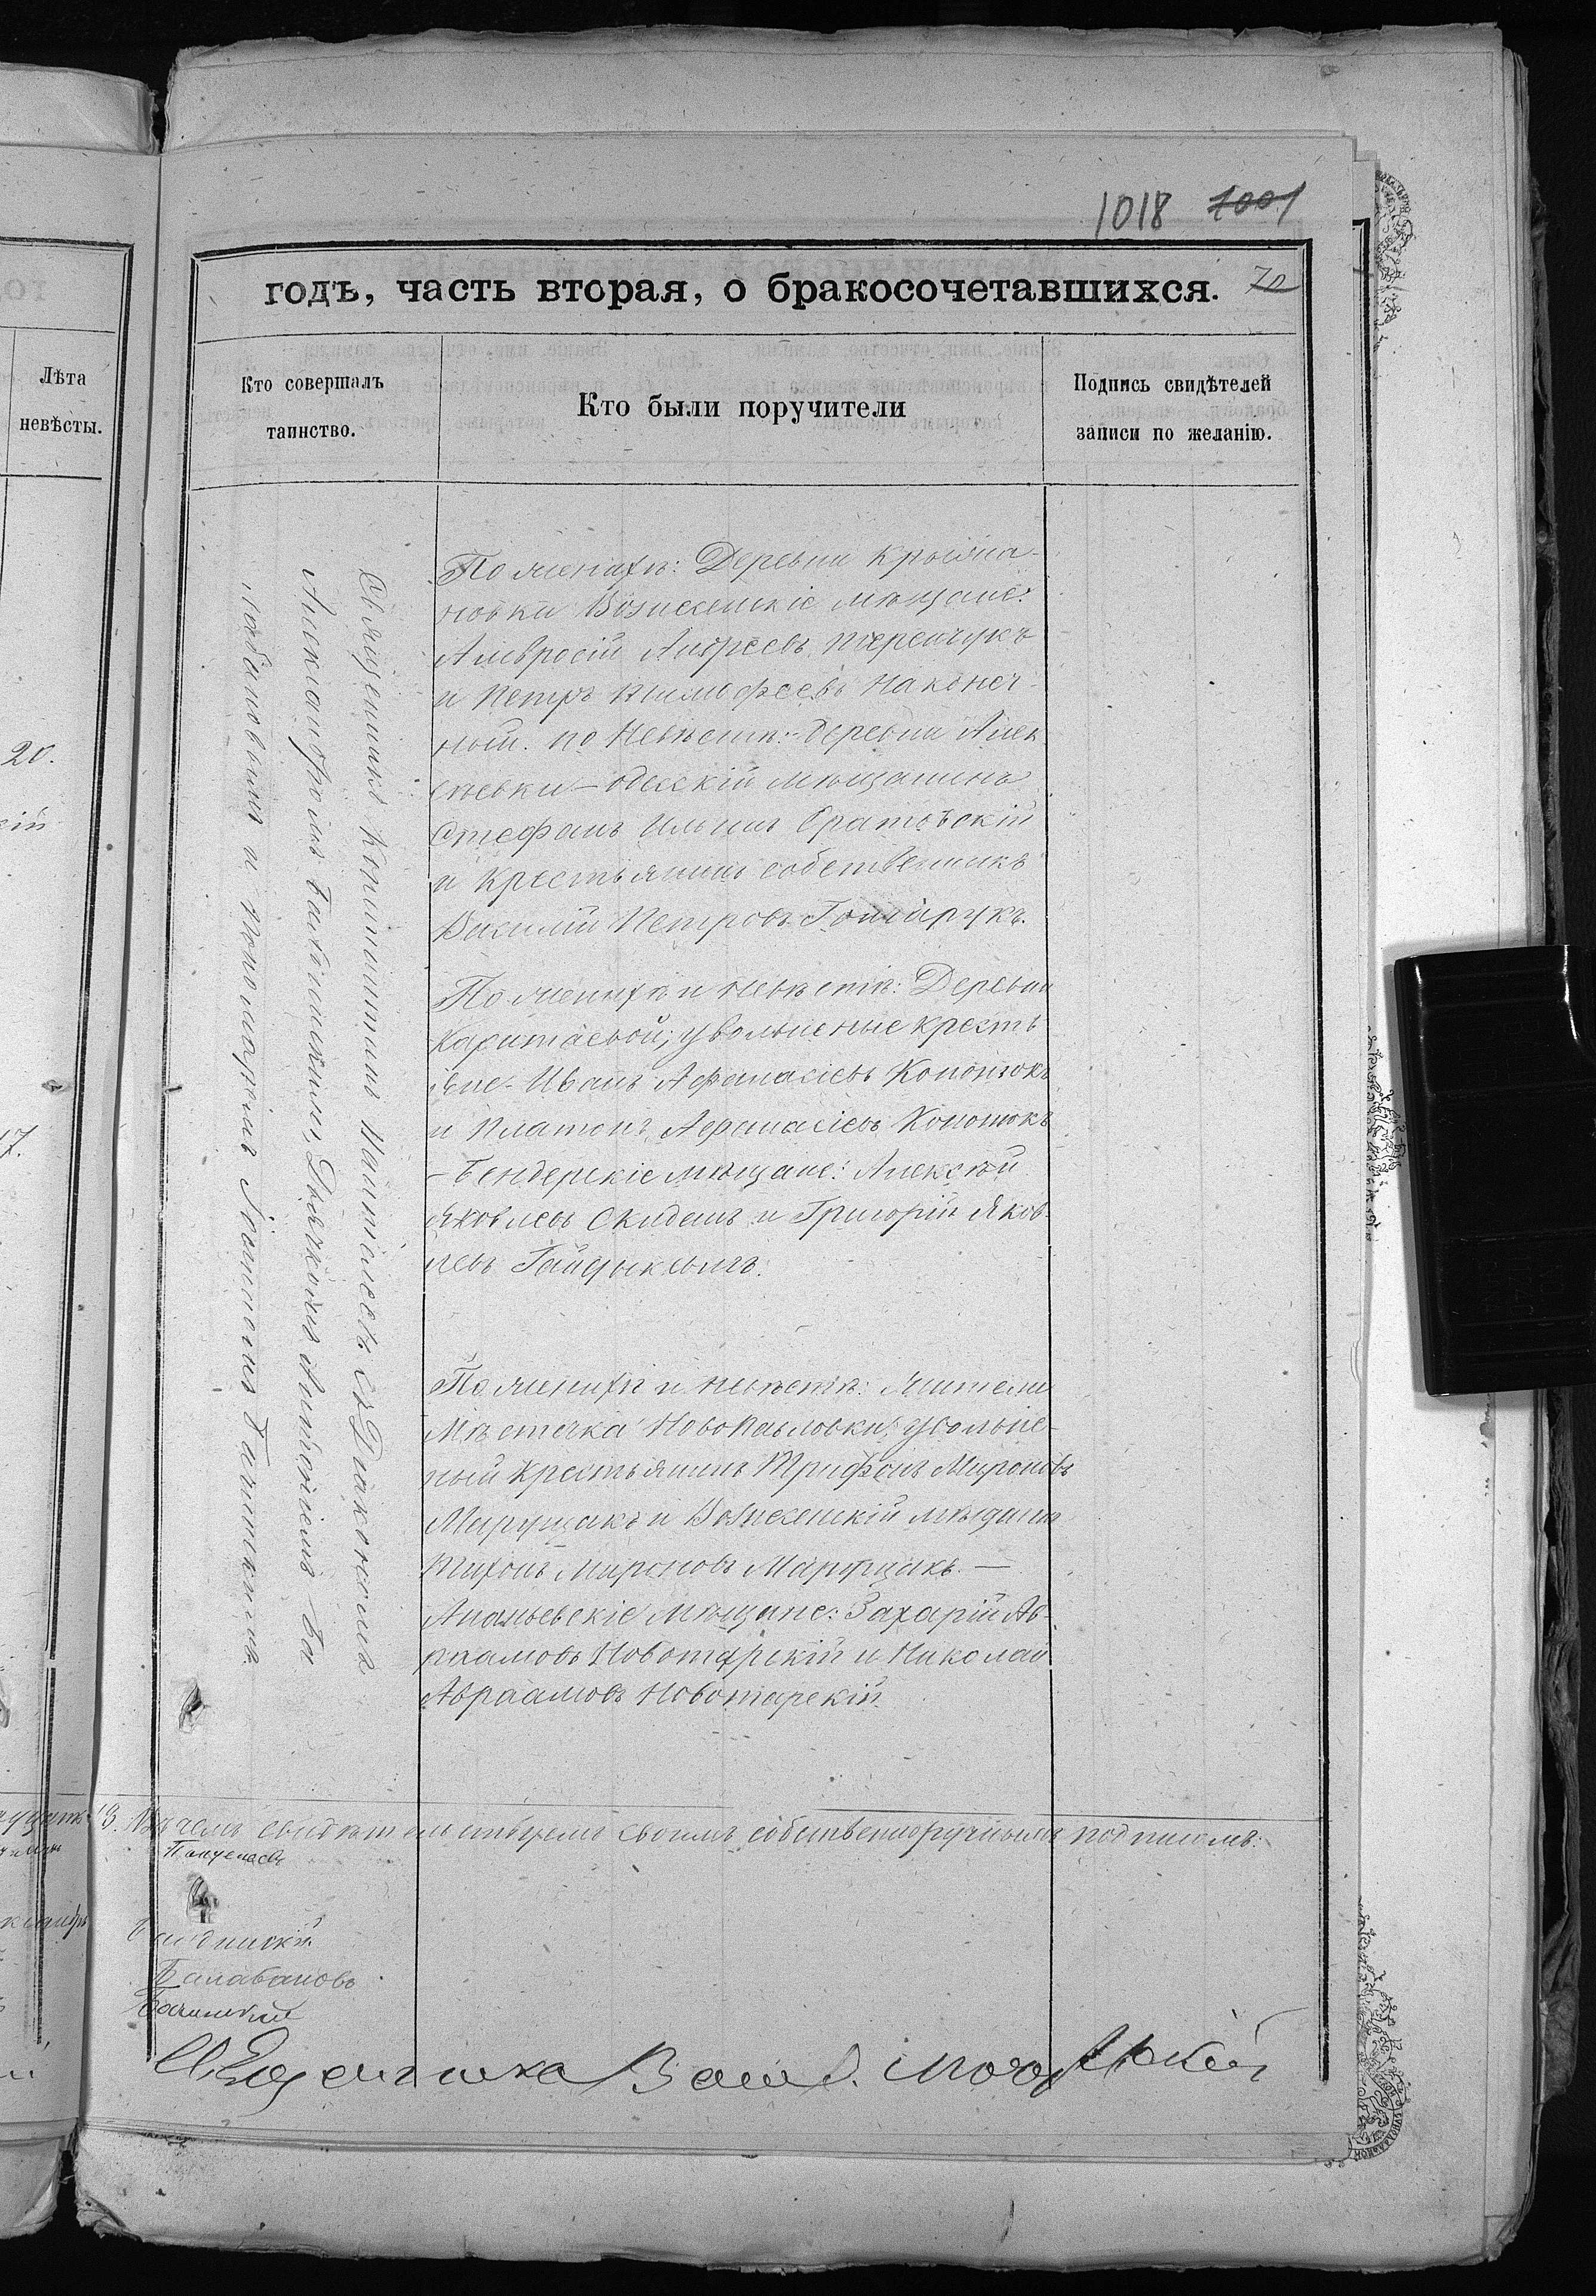 1018 1001
годъ, часть вторая, о бракосочетавшихся. 70
Лѣта
невѣсты.
Кто совершалъ
таинство.
Кто были поручители
Подпись свидѣтелей
записи по желанію.
20.
17.
Священникъ Константинъ съ Діакономъ
Александромъ Дьячкомъ Антоніемъ Ба
лабановымъ и Пономаремъ
По женихѣ: Деревни
новки Вознесенскіе мѣщане:
Амвросій Андреевъ Теренчукъ
и Петръ Тимофеевъ Наконеч
ный. по Невѣстѣ: деревни Алек
сѣевки - одесскій мѣщанинъ
Стефанъ Ильинъ Оратовскій
и Крестьянинъ собственникъ
Василій Петровъ Гончарукъ.
По женихѣ и невѣстѣ: Деревни
Каритаевой; уволненые кресть
яне - Иванъ Афанасіевъ Кононюкъ
и Платонъ Афанасіевъ Кононюкъ
- Бендерскіе мѣщане: Алексѣй
Яковлевъ Скиданъ и Григорій Яков
левъ
По женихѣ и невѣстѣ: Жители
Мѣстечка Новопавловки: уволне-
ный Крестьянинъ Трифонъ Мироновъ
Марущакъ и Вознесенскій мѣщанин
Тихонъ Мироновъ Марущакъ. —
Ананьевскіе Мѣщане: Захарій Ав-
раамовъ Новотарскій и Николай
Авраамовъ Новотарскій.
въ чемъ свидѣтельствуемъ своимъ собственноручнымъ подписомъ:
Балабановъ